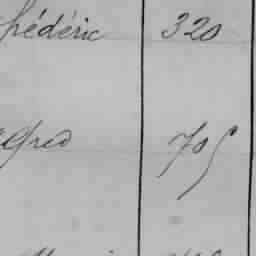 frédéric 320
fred 705